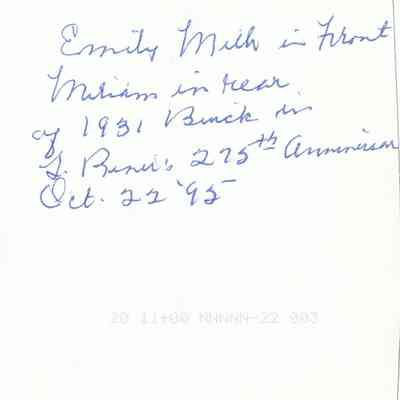 Emily Mill in Front
Miriam in rear
of 1931 Buick in
275th Anniversar
Oct. 22 '95
20 11+00 NNNNN-22 003